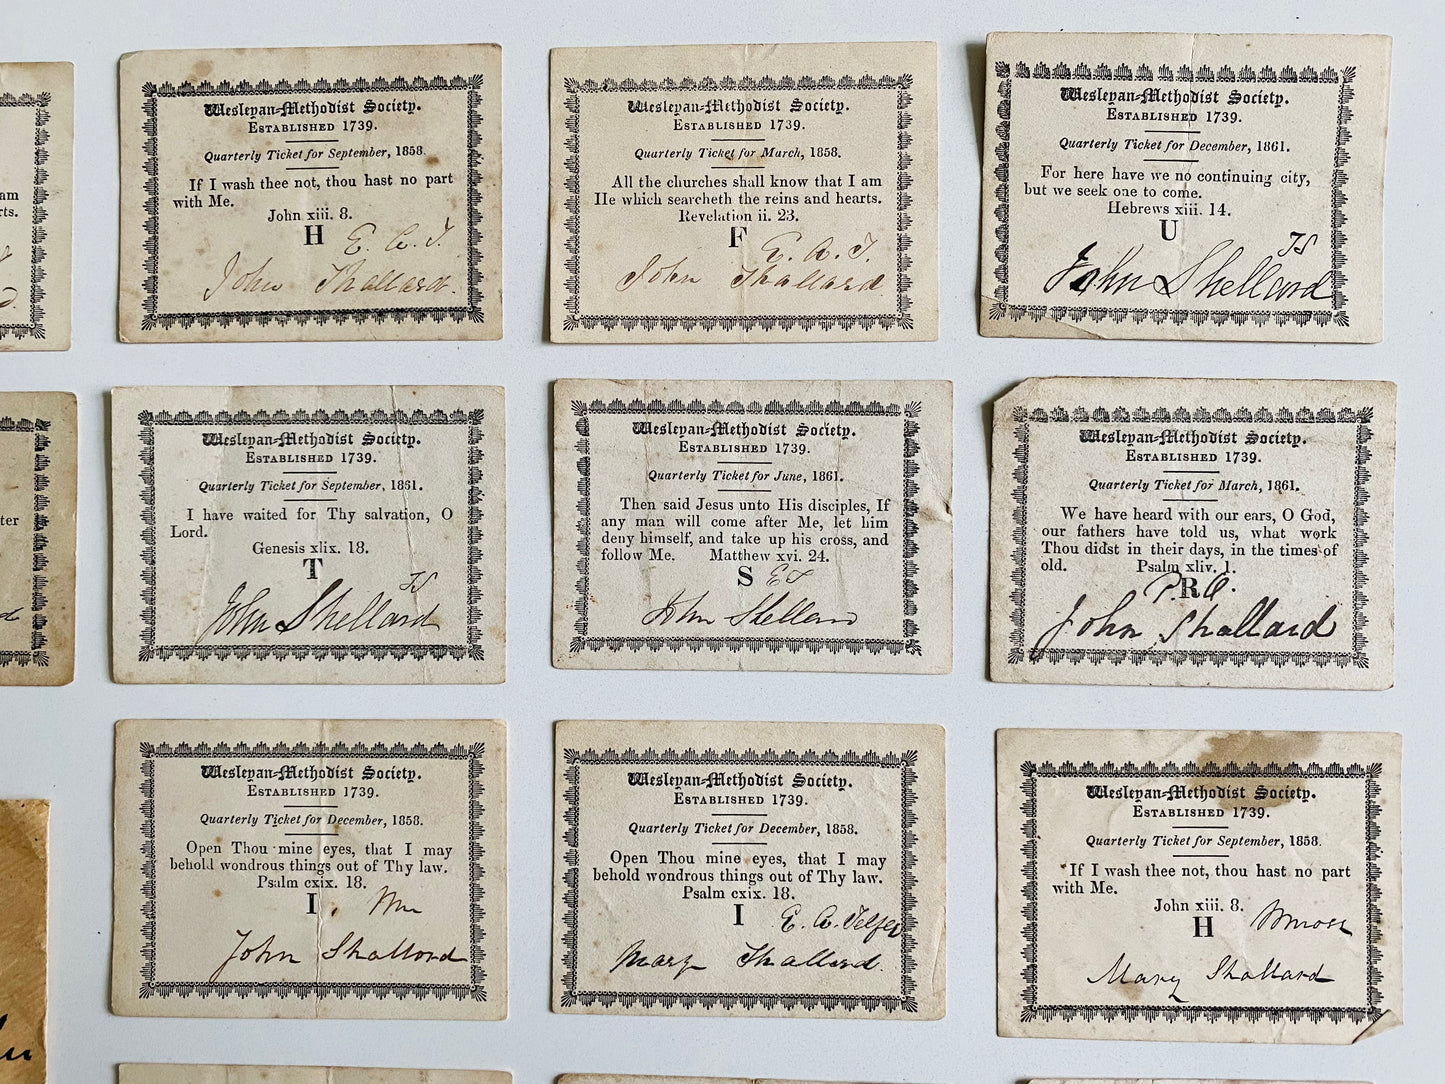 am
rts.
Wesleyan-Methodist Society.
ESTABLISHED 1739.
Quarterly Ticket for September, 1858.
If I wash thee not, thou hast no part
with Me.
John xiii. 8.
H E. A. T.
John Shallard.
Wesleyan-Methodist Society.
ESTABLISHED 1739.
Quarterly Ticket for March, 1858.
All the churches shall know that I am
He which searcheth the reins and hearts.
Revelation ii. 23.
F E. A. T.
John Shallard
Wesleyan-Methodist Society.
ESTABLISHED 1739.
Quarterly Ticket for December, 1861.
For here have we no continuing city,
but we seek one to come.
Hebrews xiii. 14.
U
John Shellard
ter
Wesleyan-Methodist Society.
ESTABLISHED 1739.
Quarterly Ticket for September, 1861.
I have waited for Thy salvation, O
Lord.
Genesis xlix. 18.
T
John Shellard
Wesleyan-Methodist Society.
ESTABLISHED 1739.
Quarterly Ticket for June, 1861.
Then said Jesus unto His disciples, If
any man will come after Me, let him
deny himself, and take up his cross, and
follow Me. Matthew xvi. 24.
S ET
John Shellard
Wesleyan-Methodist Society.
ESTABLISHED 1739.
Quarterly Ticket for March, 1861.
We have heard with our ears, O God,
our fathers have told us, what work
Thou didst in their days, in the times of
old. Psalm xliv. 1.
R
John Shallard
Wesleyan-Methodist Society.
ESTABLISHED 1739.
Quarterly Ticket for December, 1858.
Open Thou mine eyes, that I may
behold wondrous things out of Thy law.
Psalm cxix. 18.
I
John Shallard
Wesleyan-Methodist Society.
ESTABLISHED 1739.
Quarterly Ticket for December, 1858.
Open Thou mine eyes, that I may
behold wondrous things out of Thy law.
Psalm cxix. 18.
I E. A. Telfer
Mary Shallard.
Wesleyan-Methodist Society.
ESTABLISHED 1739.
Quarterly Ticket for September, 1858.
If I wash thee not, thou hast no part
with Me.
John xiii. 8.
H
Mary Shallard